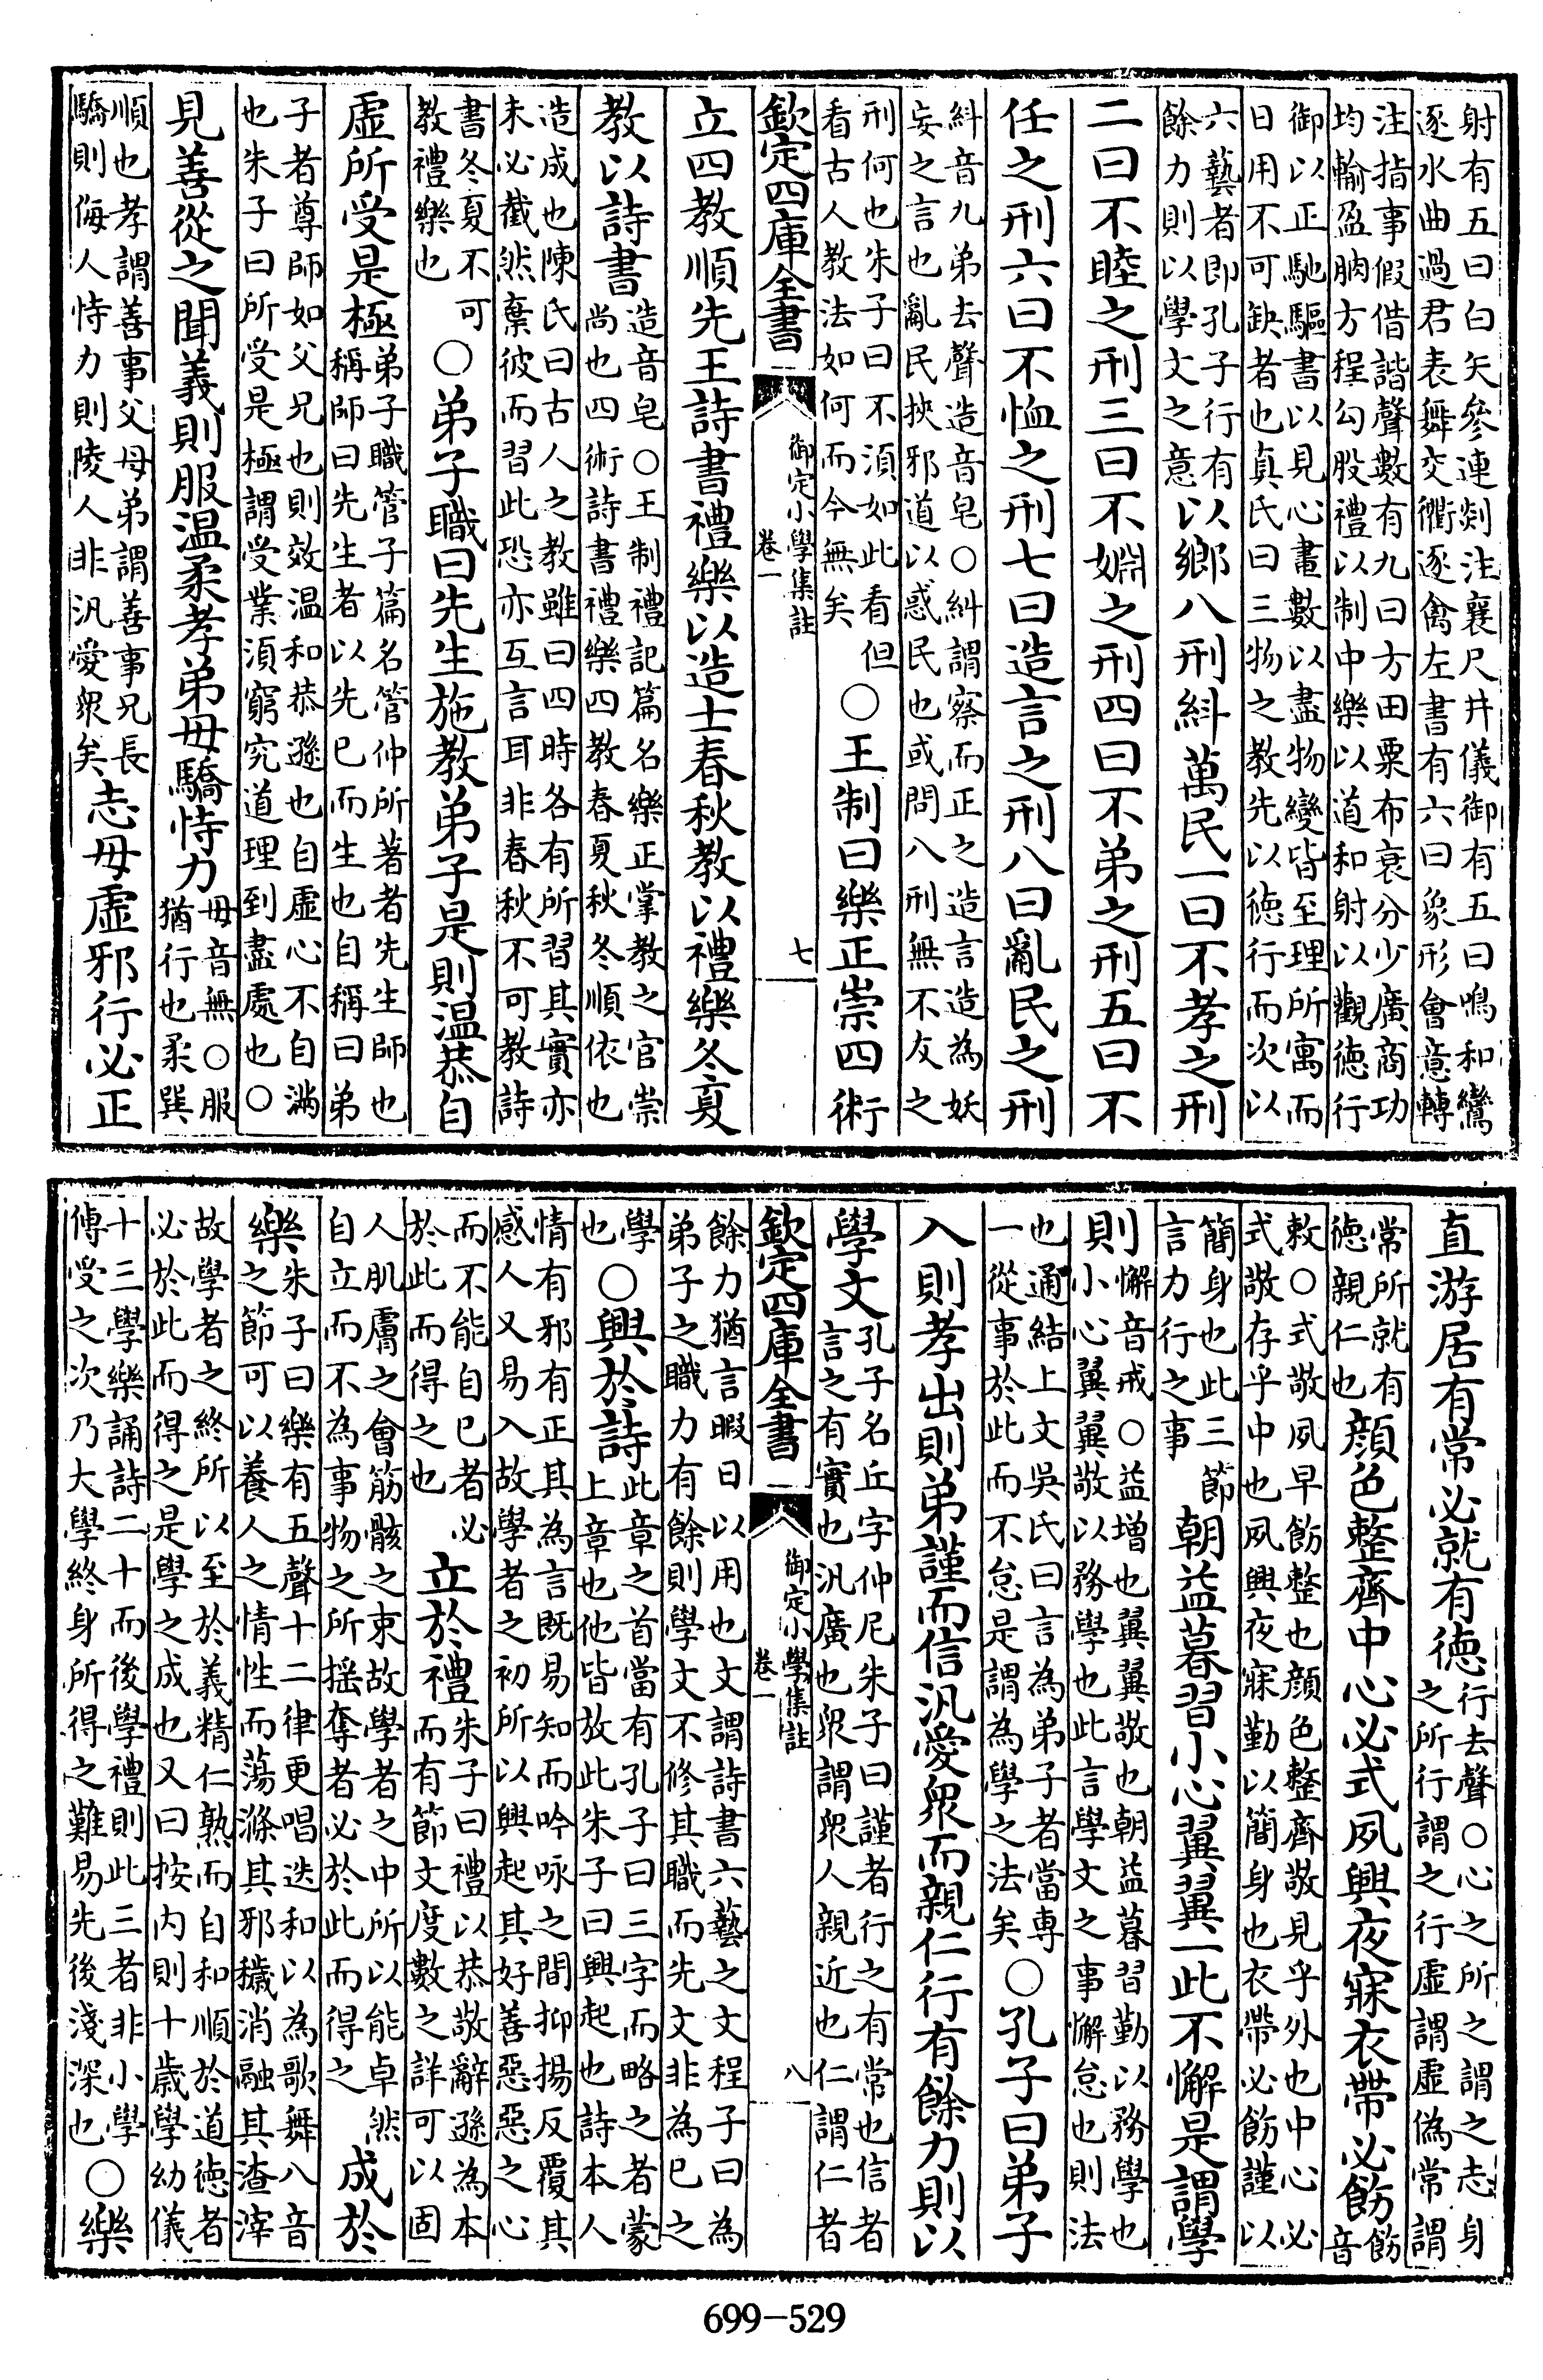 射有五曰白矢參連剡注襄尺井儀御有五曰鳴和鸞
逐水曲過君表舞交衢逐禽左書有六曰象形會意轉
注指事假借諧聲數有九曰方田粟布衰分少廣商功
均輸盈朒方程勾股禮以制中樂以道和射以觀徳行
御以正馳驅書以見心畫數以盡物變皆至理所寓而
日用不可缺者也真氏曰三物之教先以徳行而次以
六藝者即孔子行有餘力則以學文之意以鄉八刑糾萬民一曰不孝之刑
二曰不睦之刑三曰不婣之刑四曰不弟之刑五曰不
任之刑六曰不恤之刑七曰造言之刑八曰亂民之刑
糾音九弟去聲造音皂○糾謂察而正之造言造為妖
妄之言也亂民挾邪道以惑民也或問八刑無不友之
刑何也朱子曰不須如此看但看古人教法如何而今無矣○王制曰樂正崇四術
欽定四庫全書 御定小學集註 卷一 七
立四教順先王詩書禮樂以造士春秋教以禮樂冬夏
教以詩書造音皂○王制禮記篇名樂正掌教之官崇尚也四術詩書禮樂四教春夏秋冬順依也
造成也陳氏曰古人之教雖曰四時各有所習其實亦
未必截然棄彼而習此恐亦互言耳非春秋不可教詩
書冬夏不可教禮樂也○弟子職曰先生施教弟子是則温恭自
虛所受是極弟子職管子篇名管仲所著者先生師也稱師曰先生者以先已而生也自稱曰弟
子者尊師如父兄也則效温和恭遜也自虛心不自滿
也朱子曰所受是極謂受業須窮究道理到盡處也○
見善從之聞義則服温柔孝弟毋驕恃力毋音無○服猶行也柔巽
順也孝謂善事父母弟謂善事兄長驕則侮人恃力則陵人非汎愛衆矣志毋虛邪行必正
直游居有常必就有徳行去聲○心之所之謂之志身之所行謂之行虛謂虛偽常謂
常所就有徳親仁也顔色整齊中心必式夙興夜寐衣帶必飭飭音
敕○式敬夙早飭整也顔色整齊敬見乎外也中心必
式敬存乎中也夙興夜寐勤以簡身也衣帶必飭謹以
簡身也此三節言力行之事朝益暮習小心翼翼一此不懈是謂學
則懈音戒○益增也翼翼敬也朝益暮習勤以務學也小心翼翼敬以務學也此言學文之事懈怠也則法
也通結上文吳氏曰言為弟子者當専一從事於此而不怠是謂為學之法矣○孔子曰弟子
入則孝出則弟謹而信汎愛衆而親仁行有餘力則以
學文孔子名丘字仲尼朱子曰謹者行之有常也信者言之有實也汎廣也衆謂衆人親近也仁謂仁者
餘力猶言暇日以用也文謂詩書六藝之文程子曰為
弟子之職力有餘則學文不修其職而先文非為已之
欽定四庫全書 御定小學集註 卷一 八
學也○興於詩此章之首當有孔子曰三字而略之者蒙上章也他皆放此朱子曰興起也詩本人
情有邪有正其為言既易知而吟咏之間抑揚反覆其
感人又易入故學者之初所以興起其好善惡惡之心
而不能自已者必於此而得之也立於禮朱子曰禮以恭敬辭遜為本而有節文度數之詳可以固
人肌膚之會筋骸之束故學者之中所以能卓然自立而不為事物之所揺奪者必於此而得之成於
樂朱子曰樂有五聲十二律更唱迭和以為歌舞八音之節可以養人之情性而蕩滌其邪穢消融其渣滓
故學者之終所以至於義精仁熟而自和順於道徳者
必於此而得之是學之成也又曰按内則十歲學幼儀
十三學樂誦詩二十而後學禮則此三者非小學傳受之次乃大學終身所得之難易先後淺深也○樂
699-529